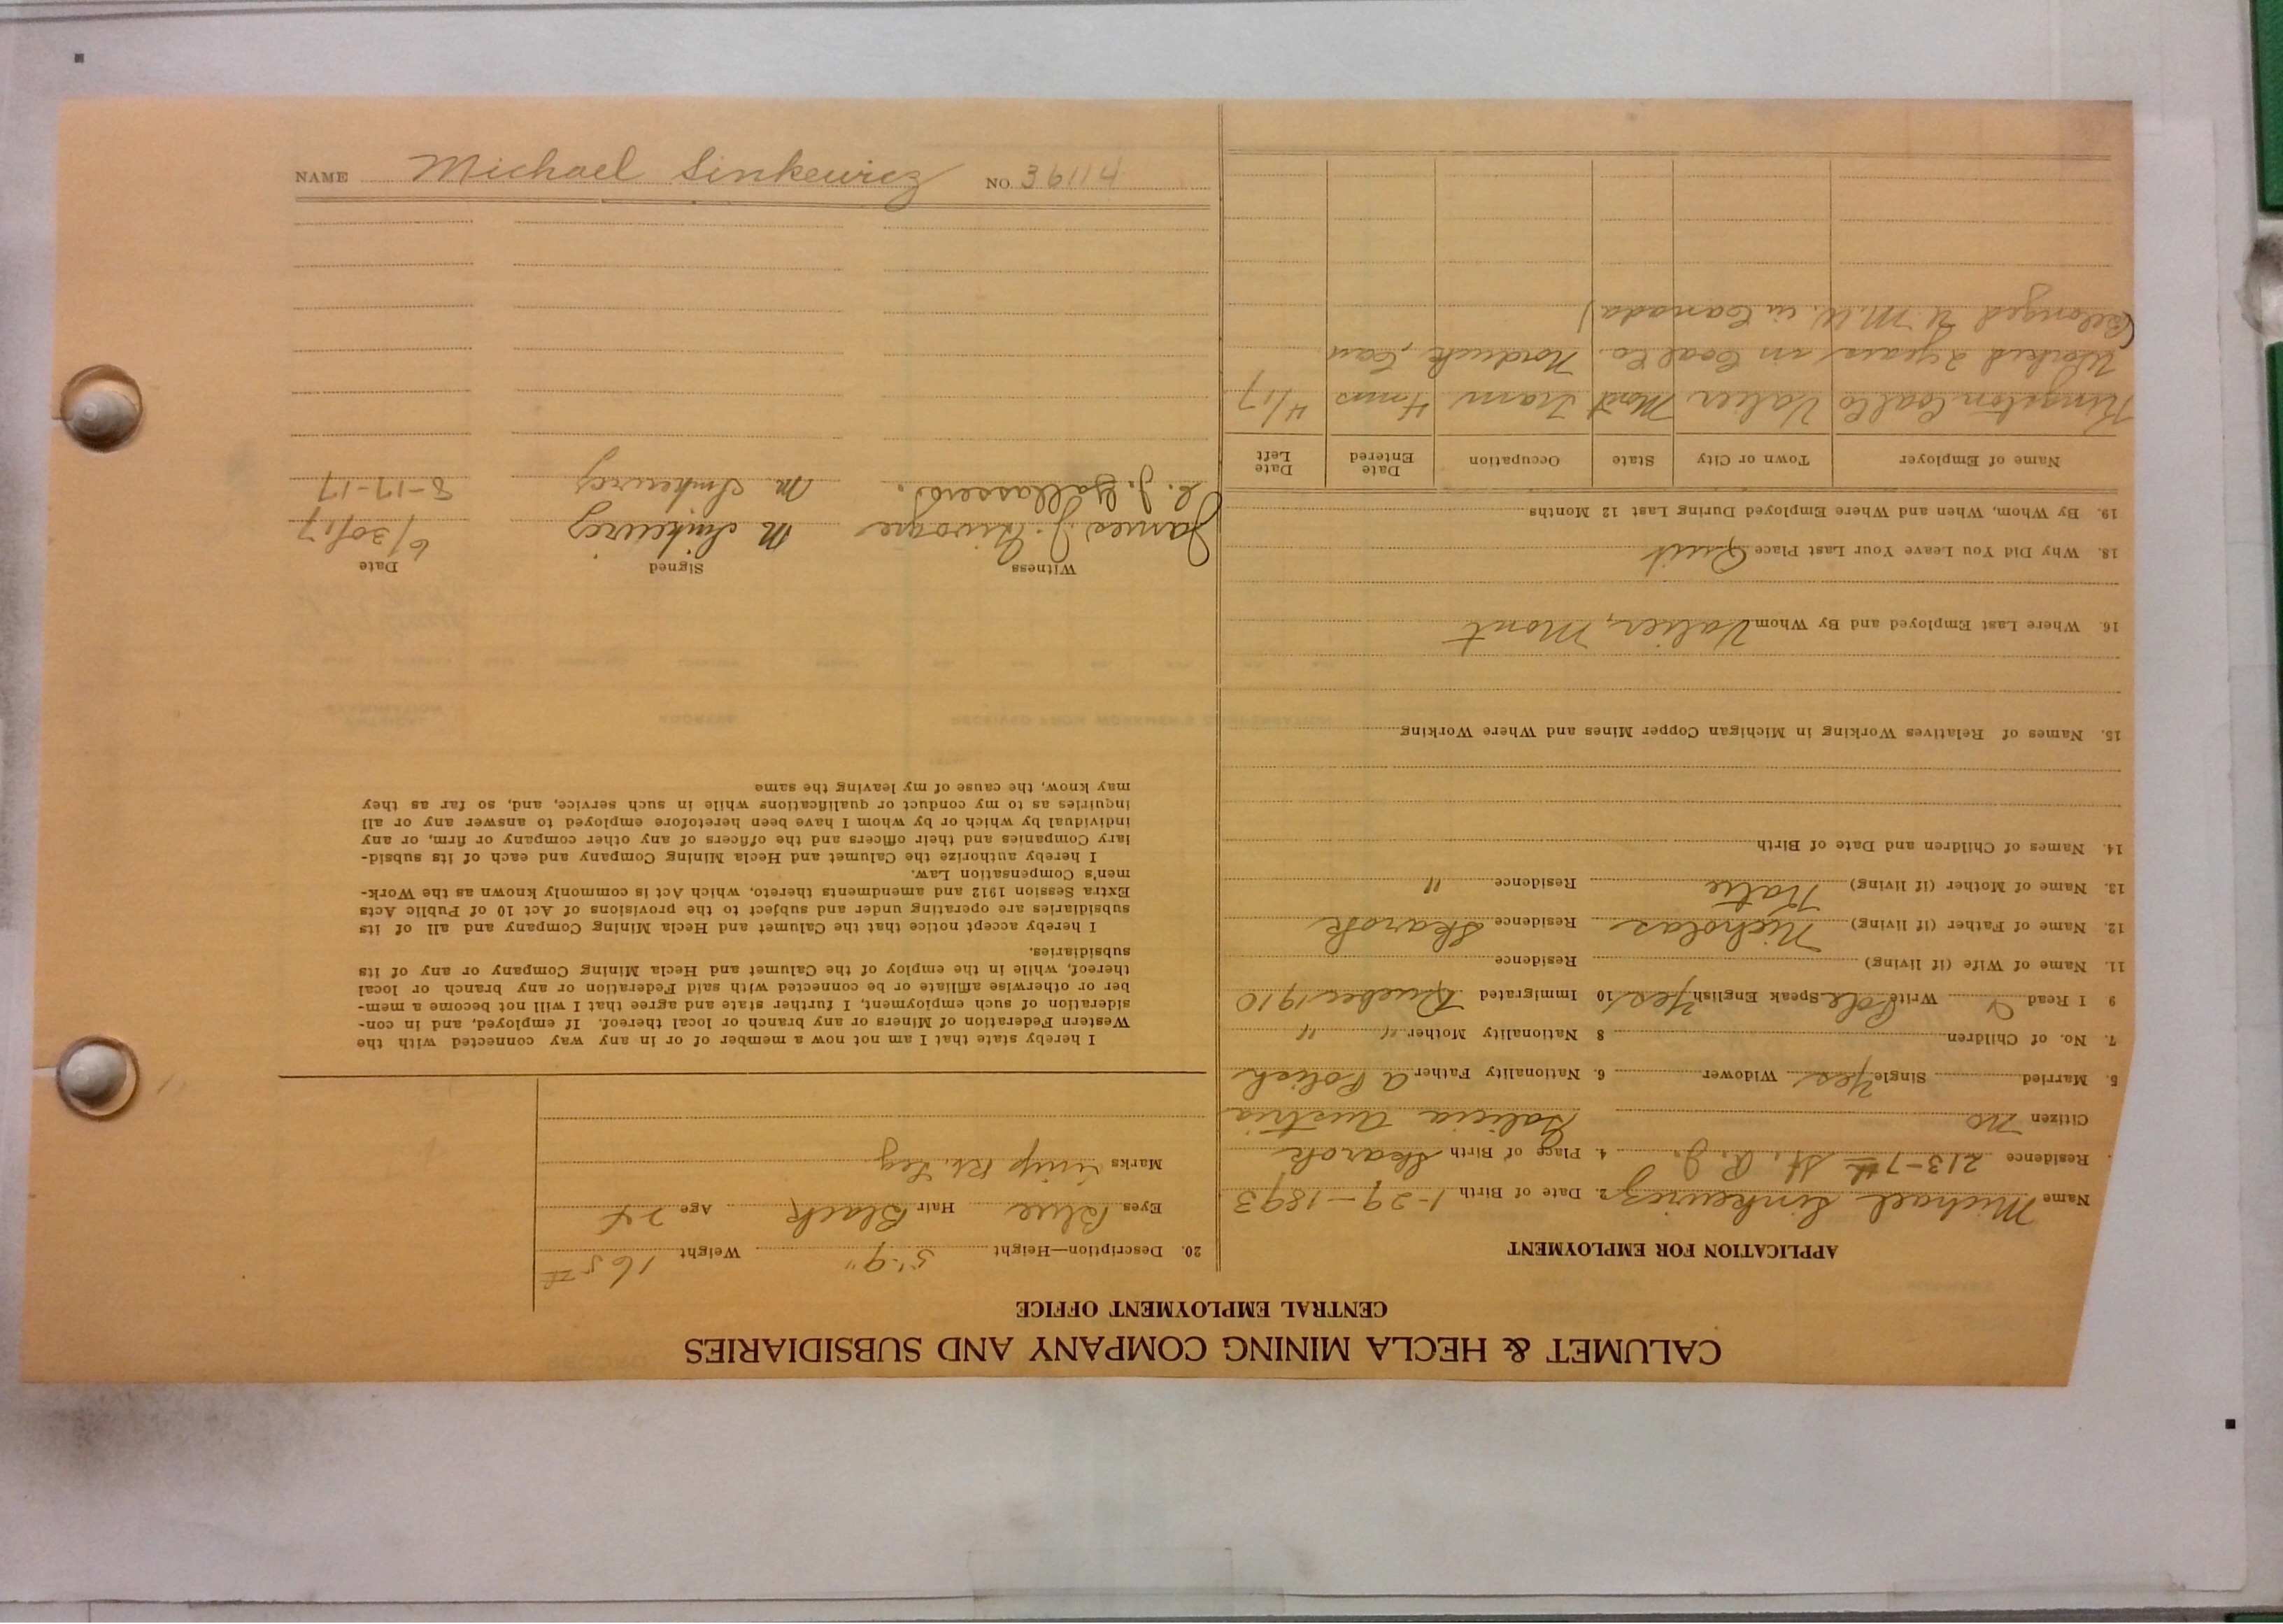 CALUMET & HECLA MINING COMPANY AND SUBSIDIARIES
CENTRAL EMPLOYMENT OFFICE
APPLICATION FOR EMPLOYMENT
Name Michael Sinkewicz 2. Date of Birth 1-29-1893
Residence 213-7th St. R. J. 4. Place of Birth Skarok
Citizen No Galicia Austria
5. Married Single Yes Widower 6. Nationality Father a Polish
7. No. of Children 8 Nationality Mother " "
9 I Read Write Pole Speak English Yes 10 Immigrated Quebec 1910
11. Name of Wife (if living) Residence
12. Name of Father (if living) Nicholas Residence Skarok
13. Name of Mother (if living) Katie Residence "
14. Names of Children and Date of Birth
15. Names of Relatives Working in Michigan Copper Mines and Where Working
16. Where Last Employed and By Whom Valier, Mont
18. Why Did You Leave Your Last Place Quit
19. By Whom, When and Where Employed During Last 12 Months
Name of Employer Town or City State Occupation Date Entered Date Left
Kingston Coal Co Valier Mont Tram 4 mos 4/17
Worked 2 years in Coal Co. Can
(Belonged U.M.W. in Canada)
20. Description—Height 5'-9" Weight 165#
Eyes Blue Hair Black Age 24
Marks Limp Rt. Leg
I hereby state that I am not now a member of or in any way connected with the
Western Federation of Miners or any branch or local thereof. If employed, and in con-
sideration of such employment, I further state and agree that I will not become a mem-
ber or otherwise affiliate or be connected with said Federation or any branch or local
thereof, while in the employ of the Calumet and Hecla Mining Company or any of its
subsidiaries.
I hereby accept notice that the Calumet and Hecla Mining Company and all of its
subsidiaries are operating under and subject to the provisions of Act 10 of Public Acts
Extra Session 1912 and amendments thereto, which Act is commonly known as the Work-
men's Compensation Law.
I hereby authorize the Calumet and Hecla Mining Company and each of its subsid-
iary Companies and their officers and the officers of any other company or firm, or any
individual by which or by whom I have been heretofore employed to answer any or all
inquiries as to my conduct or qualifications while in such service, and, so far as they
may know, the cause of my leaving the same
Witness Signed Date
James J. M Sinkewicz 6/30/17
C. J. M. Sinkewicz 8-17-17
NAME Michael Sinkewicz NO. 36114